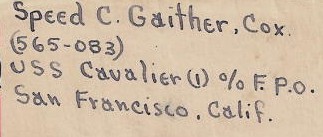 Speed C. Gaither, Cox.
(565-083)
USS Cavalier (1) % F.P.O.
San Francisco, Calif.